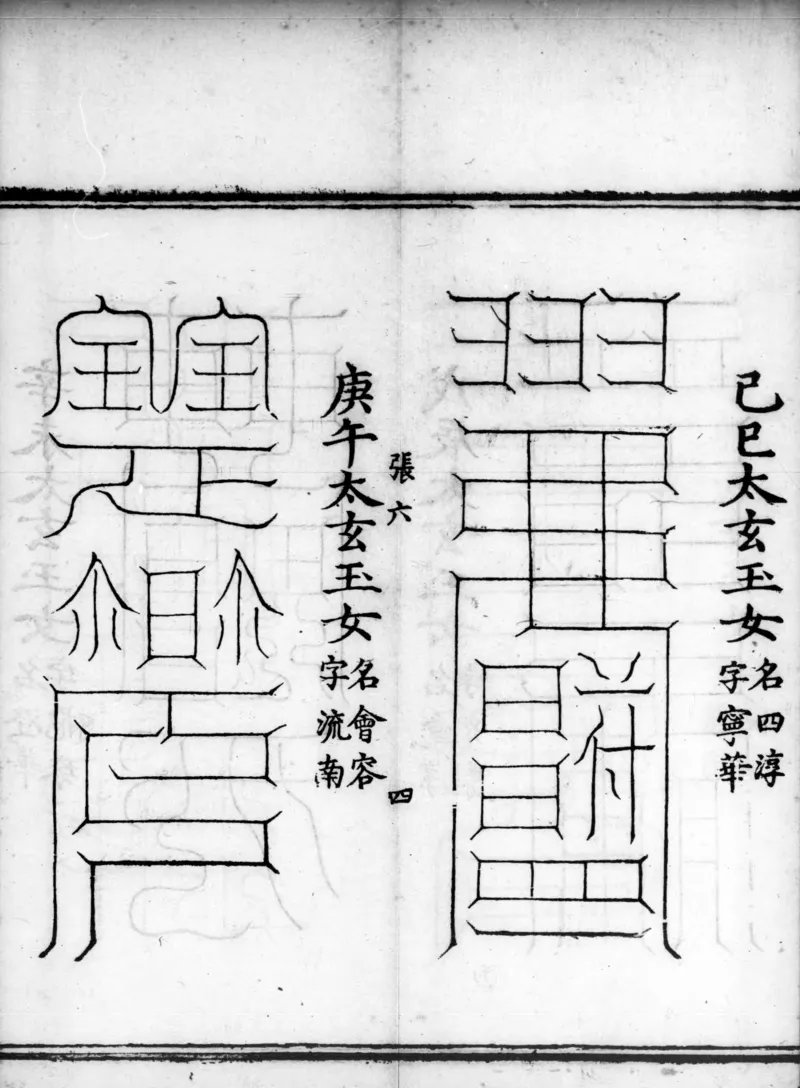 己巳太玄玉女
名四淳
字寧華
張六
四
庚午太玄玉女
名會容
字流南